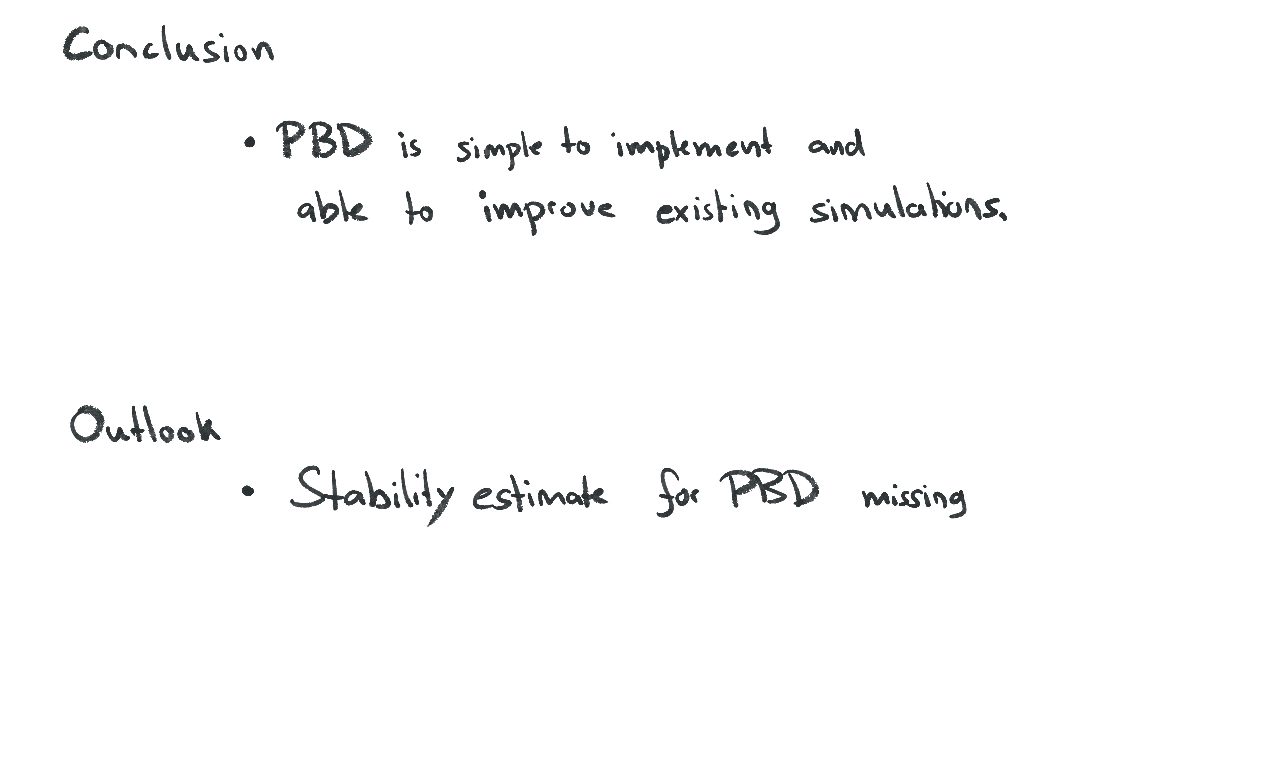 Conclusion
• PBD is simple to implement and
able to improve existing simulations.
Outlook
• Stability estimate for PBD missing